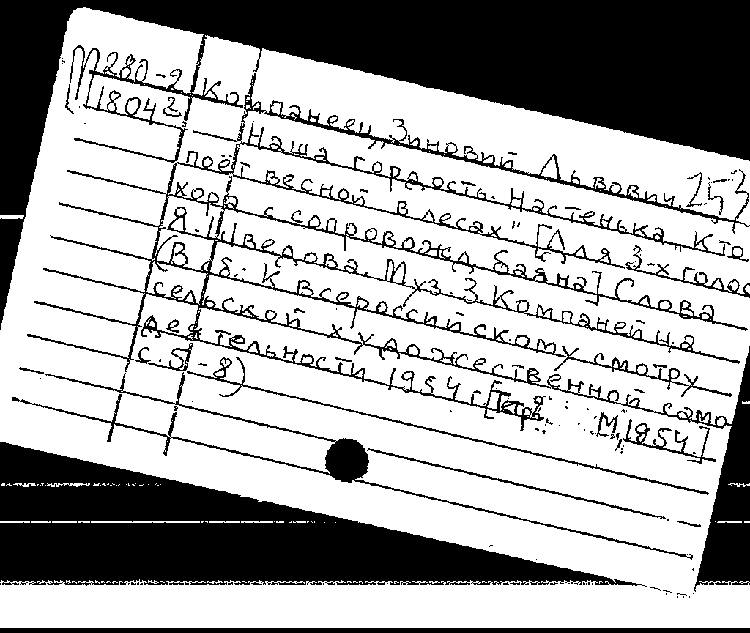 М280-2
18042
Компанеец, Зиновий Львович. 253
Наша гордость. Настенька. „Кто
поёт весной в лесах" [Для 3-х голос
хора с сопровожд. баяна] Слова
Я. Шведова. Муз. З. Компанейца.
(В сб.: К всероссийскому смотру
сельской художественной само
деятельности 1954 г. [Тетр. М., 1954.]
с. 5-8)